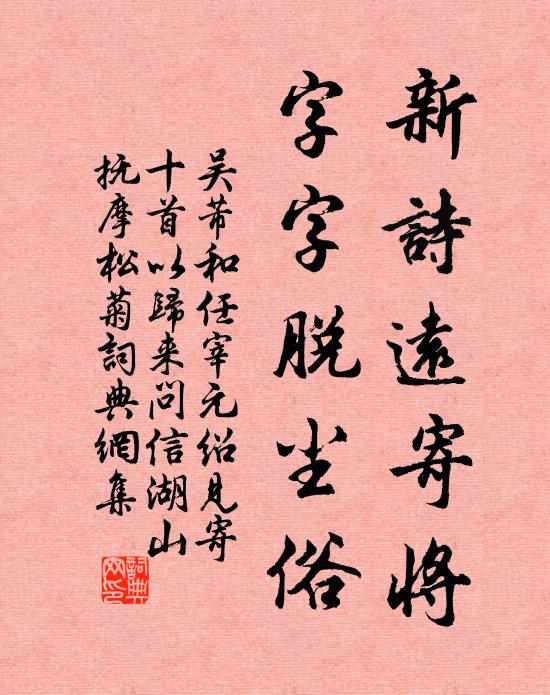 新詩遠寄將
字字脱尘俗
吴芾和任宰元绍见寄
十首以歸来问信湖山
抚摩松菊詞典網集
詞典网印